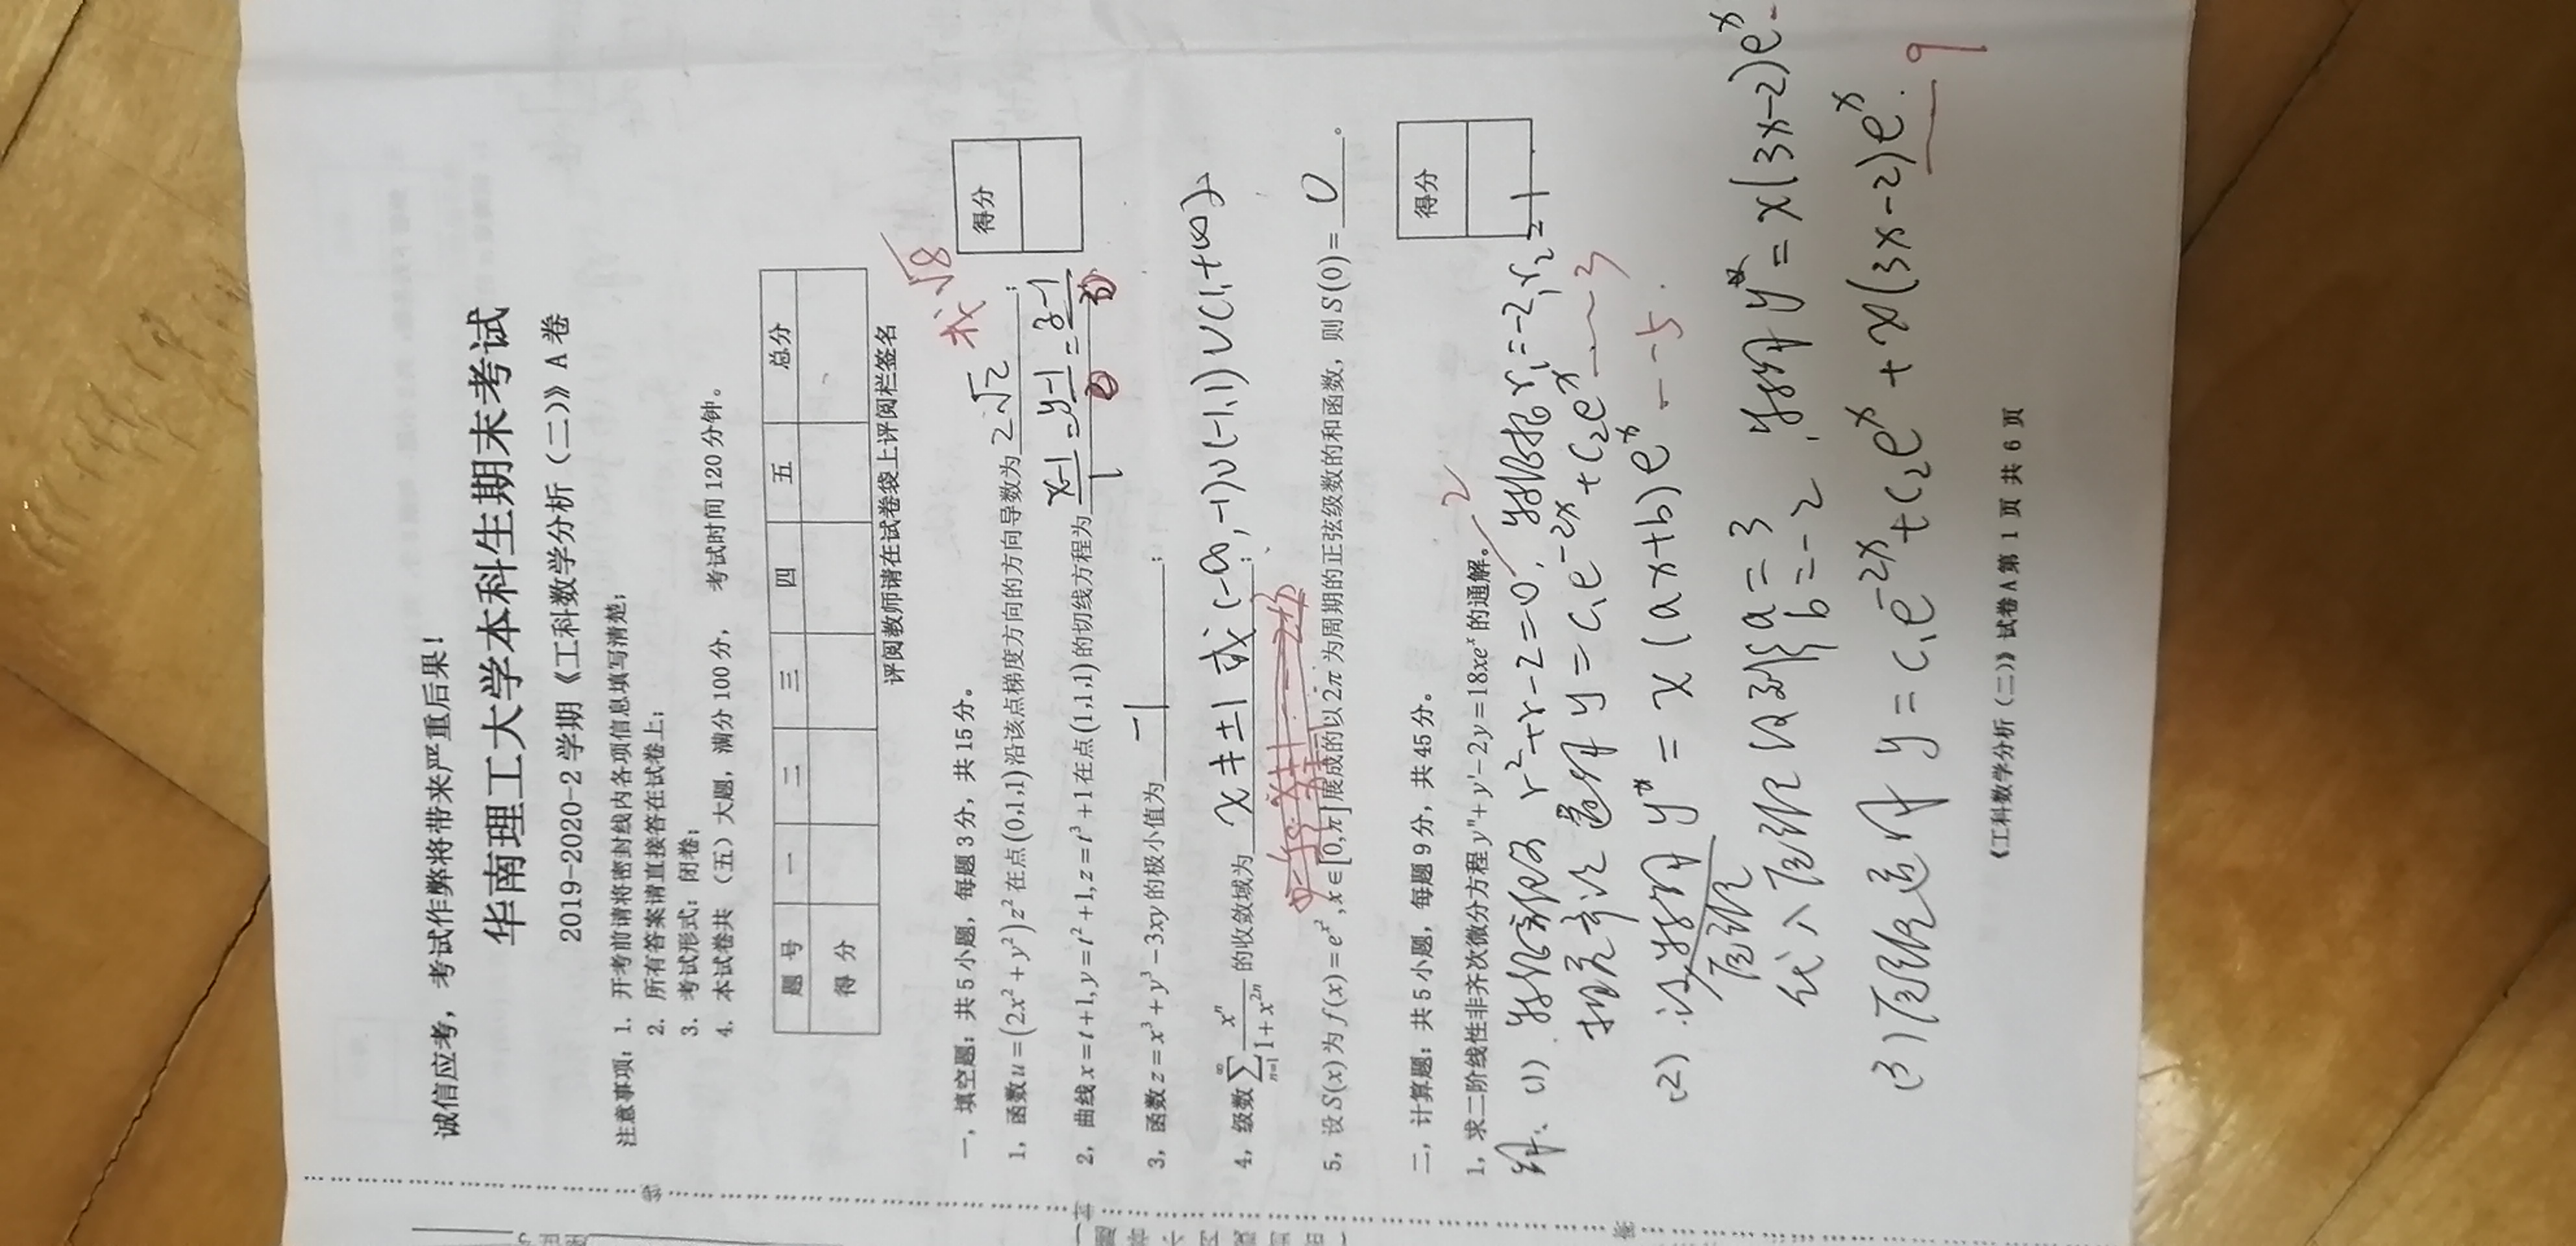 诚信应考，考试作弊将带来严重后果！
华南理工大学本科生期末考试
2019-2020-2 学期《工科数学分析（二）》A 卷
注意事项：1. 开考前请将密封线内各项信息填写清楚；
2. 所有答案请直接答在试卷上；
3. 考试形式：闭卷；
4. 本试卷共（五）大题，满分 100 分， 考试时间 120 分钟。
题 号 一 二 三 四 五 总分
得 分
评阅教师请在试卷袋上评阅栏签名
得分
一，填空题：共 5 小题，每题 3 分，共 15 分。
或 √8
1，函数 u = (2x² + y²)z² 在点 (0,1,1) 沿该点梯度方向的方向导数为 2√2 ；
2，曲线 x = t+1, y = t²+1, z = t³+1 在点 (1,1,1) 的切线方程为 (x-1)/1 = (y-1)/0 = (z-1)/0
3，函数 z = x³ + y³ - 3xy 的极小值为 -1 ；
4，级数 ∑_{n=1}^{∞} xⁿ/(1+x²ⁿ) 的收敛域为 x ≠ ±1 或 (-∞, -1)∪(-1,1)∪(1,+∞) ；
5，设 S(x) 为 f(x) = e^{x²}, x∈[0,π] 展成的以 2π 为周期的正弦级数的和函数，则 S(0) = 0 。
得分
二，计算题：共 5 小题，每题 9 分，共 45 分。
1，求二阶线性非齐次微分方程 y″ + y′ - 2y = 18xeˣ 的通解。 2
解: (1) 特征方程为 r²+r-2=0, 特征根 r₁=-2, r₂=1
相应齐次通解 y = c₁e⁻²ˣ + c₂eˣ ---3
(2) 设特解 y* = x(ax+b)eˣ --5.
原方程
代入原方程 得到 { a=3 b=-2 , 特解 y* = x(3x-2)eˣ -
(3) 原方程通解 y = c₁e⁻²ˣ + c₂eˣ + x(3x-2)eˣ. —9
《工科数学分析（二）》试卷 A 第 1 页 共 6 页
线